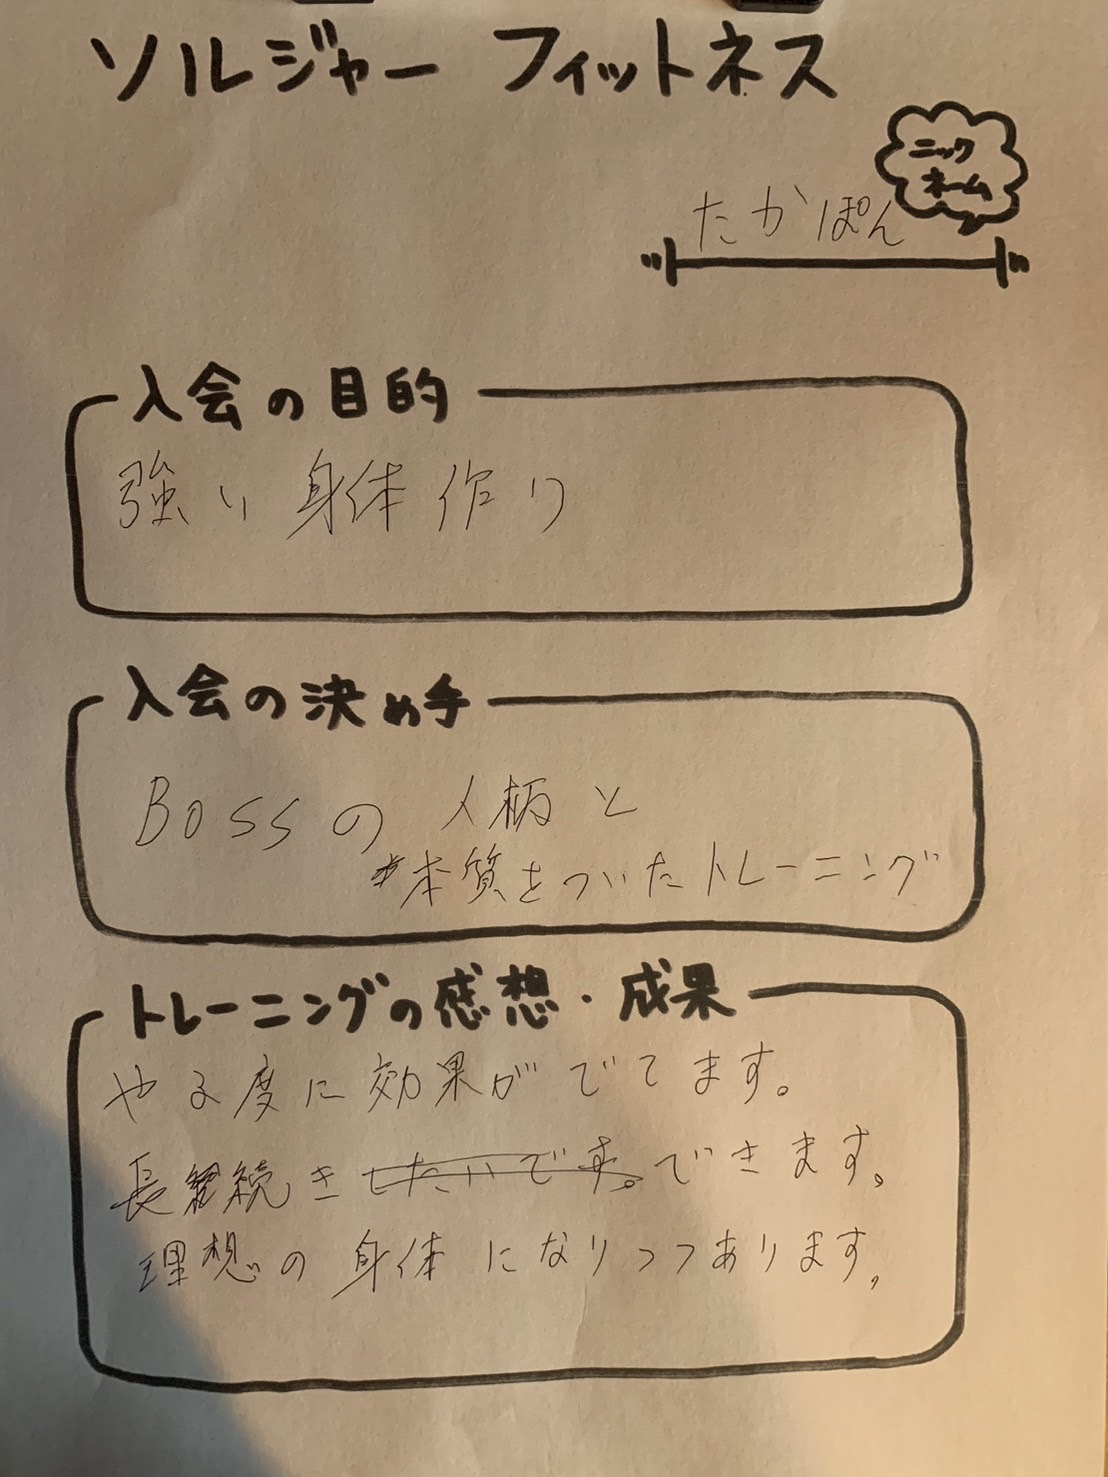 ソルジャー フィットネス
ニック
ネーム
たかぽん
入会の目的
強い身体作り
入会の決め手
BOSSの人柄と
本質をついたトレーニング
トレーニングの感想・成果
やる度に効果がでてます。
長続きしたいです。できます。
理想の身体になりつつあります。